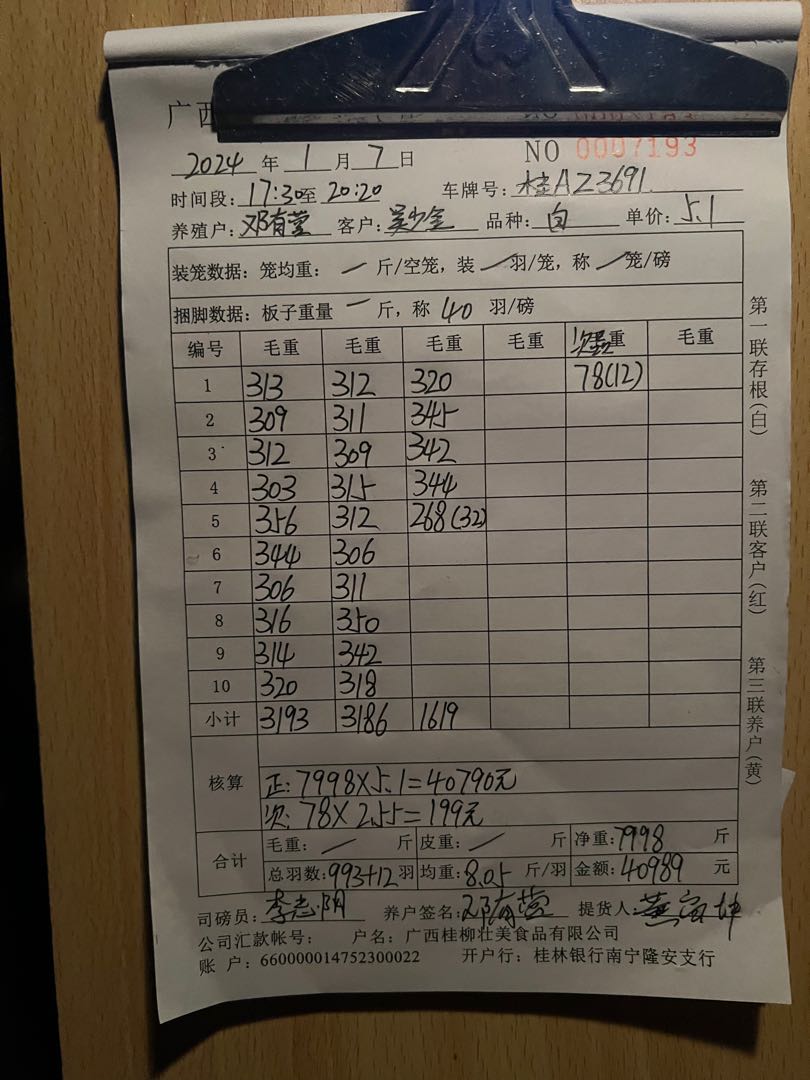 广西
NO 0007193
2024 年 1 月 7 日
时间段: 17:30至 20:20 车牌号: 桂AZ3691
养殖户: 邓有莹 客户: 吴少全 品种: 白 单价: 5.1
装笼数据: 笼均重: / 斤/空笼, 装 / 羽/笼, 称 / 笼/磅
捆脚数据: 板子重量 一 斤, 称 40 羽/磅
编号 毛重 毛重 毛重 毛重 次重 毛重
1 313 312 320 78(12)
2 309 311 345
3 312 309 342
4 303 315 344
5 356 312 268(32)
6 344 306
7 306 311
8 316 350
9 314 342
10 320 318
小计 3193 3186 1619
核算 正: 7998×5.1=40790元
次: 78×2.55=199元
合计 毛重: / 斤 皮重: / 斤 净重: 7998 斤
总羽数: 993+12 羽 均重: 8.05 斤/羽 金额: 40989 元
司磅员: 李志阴 养户签名: 邓有莹 提货人:
公司汇款帐号: 户名: 广西桂柳壮美食品有限公司
账 户: 660000014752300022 开户行: 桂林银行南宁隆安支行
第一联存根(白)
第二联客户(红)
第三联养户(黄)